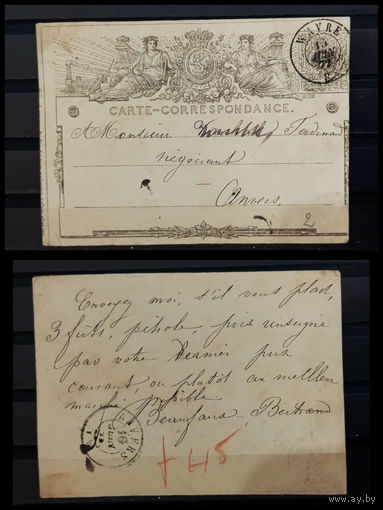 WAVRE
CARTE-CORRESPONDANCE.
A Monsieur Ferdinand
négociant
Anvers
2
Envoyez moi, s'il vous plait,
3 futs, pétrole, prix renseigné
par votre Dernier prix
courant, ou plutôt au meilleur
marché possible
Bertrand
ANVERS
16
+ 45
ay.by